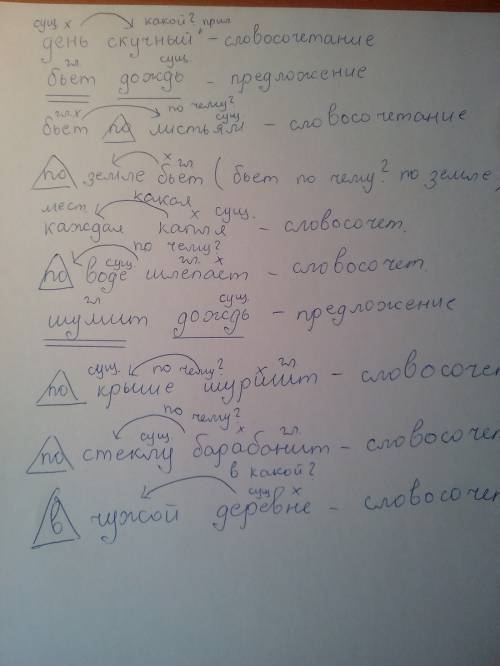 сущ х какой? прил
день скучный - словосочетание
гл. сущ.
бьет дождь - предложение
гл. х по чему? сущ
бьет по листьям - словосочетание
х гл
по земле бьет ( бьет по чему? по земле,
мест. какая х сущ.
каждая капля - словосочет.
по чему?
сущ. гл. х
по воде шлепает - словосочет.
гл сущ.
шумит дождь - предложение
сущ. по чему? х гл.
по крыше шуршит - словосочет
по чему?
сущ. х гл.
по стеклу барабанит - словосочет
в какой?
сущ х
в чужой деревне - словосочет